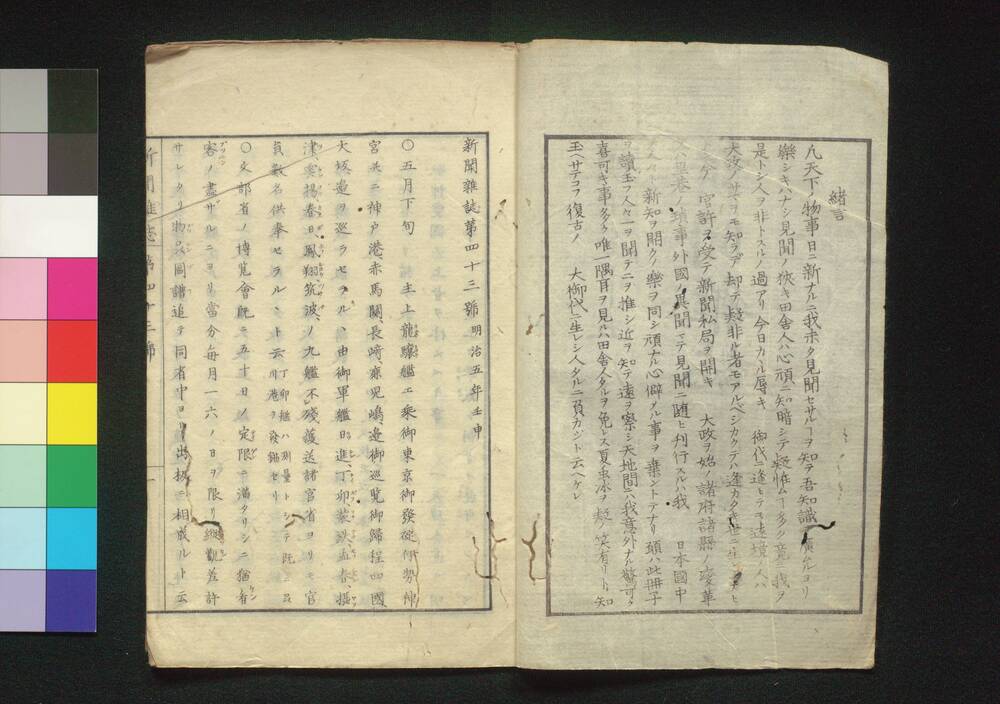 緒言
凡天下ノ物事日ニ新ナルニ我未タ見聞セサルヿヲ知テ吾知識ヲ廣ムルヨリ
樂シキハナシ見聞ノ狹キ田舎人ハ心頑ニ知暗シテ疑惟ムコト多ク竟ニ我ヲ
是トシ人ヲ非トスルノ過アリ今日カヽル辱キ 御代ニ逢ヒテモ遠境ノ人ハ
大政ノサマヲモ知ラデ却テ疑非ル者モアルベシカクテハ逢カタキ世ニ生
ケ 官許ヲ受テ新聞私局ヲ開キ 大政ヲ始 諸府諸縣ノ変革
巷ノ瑣事外國ノ異聞マテ見聞ニ随ヒ刊行スルハ我 日本國中
新知ヲ開クノ樂ヲ同シ頑ナル心僻タル事ヲ棄ントテナリ頭ハ此冊子
ヲ讀玉フ人々一ヲ聞テ二ヲ推シ近ヲ知テ遠ヲ察シ天地間ニハ我意外ナル驚可ク
喜可キ事多ク唯一隅耳ヲ見ルハ田舎人タルヲ免レス夏虫冰ヲ疑フ笑有リト知
玉ヘサテコソ復古ノ 大御代ニ生レシ人タルニ負カジト云ヘケレ
新聞雜誌第四十三號 明治五年壬申
〇五月下旬 主上龍驤艦エ乘御東京御發碇伊勢神
宮并ニ神戸港赤馬關長崎鹿児嶋邉御巡覧御歸程四國
大坂邉ヲ巡ラセラル 由御軍艦日進丁卯第貮孟春攝
津雲揚春日鳳翔筑波ノ九艦不殘護送諸官省ヨリモ官
員數名供奉セラルヽト云 丁卯艦ハ測量トシテ既ニ品川港ヲ發錨セリ
〇文部省ノ博覧會既ニ五十日ノ定限ニ滿タリシニ猶看
客ノ盡サルニヨリ當分毎月一六ノ日ヲ限リ縱觀差許
サレタリ物品圖譜追テ同省中ヨリ出板ニ相成ルト云
新聞雜誌 第四十三號 一